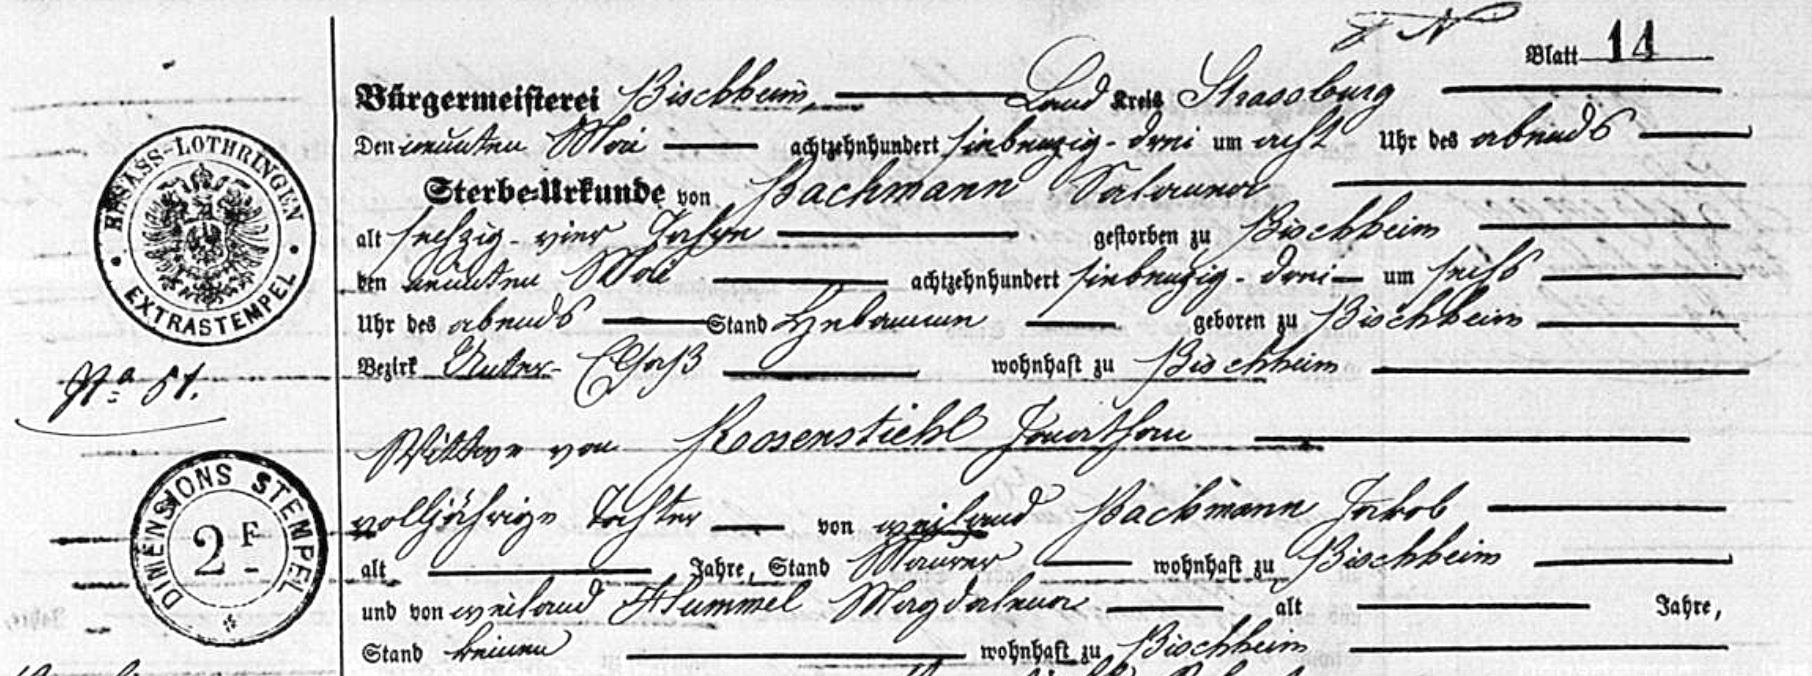 Blatt 14
Bürgermeisterei Bischheim, Land Kreis Strassburg
Den neunten Mai achtzehnhundert siebenzig-drei um acht Uhr des abends
Sterbe-Urkunde von Bachmann Salomea
alt sechzig-vier Jahre gestorben zu Bischheim
den neunten Mai achtzehnhundert siebenzig-drei um sechs
Uhr des abends Stand Hebamme geboren zu Bischheim
Bezirk Unter-Elsaß wohnhaft zu Bischheim
Wittwe von Roosenstiehl Jonathan
volljährige Tochter von weiland Bachmann Jakob
alt Jahre, Stand Maurer wohnhaft zu Bischheim
und von weiland Hummel Magdalena alt Jahre,
Stand keinen wohnhaft zu Bischheim
ELSASS-LOTHRINGEN
EXTRASTEMPEL
No 51.
DIMENSIONS STEMPEL
2 F